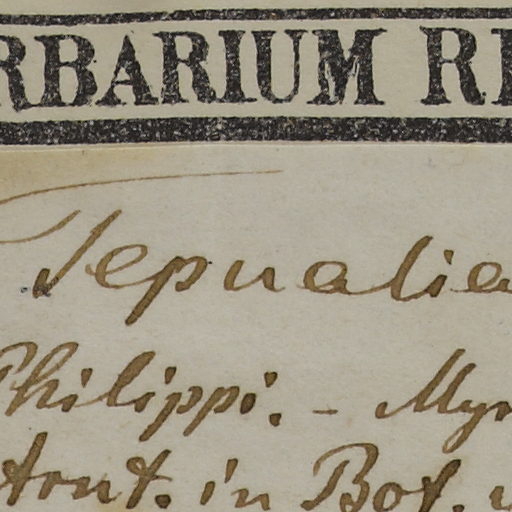 RBARIUM RE
Tepualia
Philippi. - Myr
Arnt. in Bot.